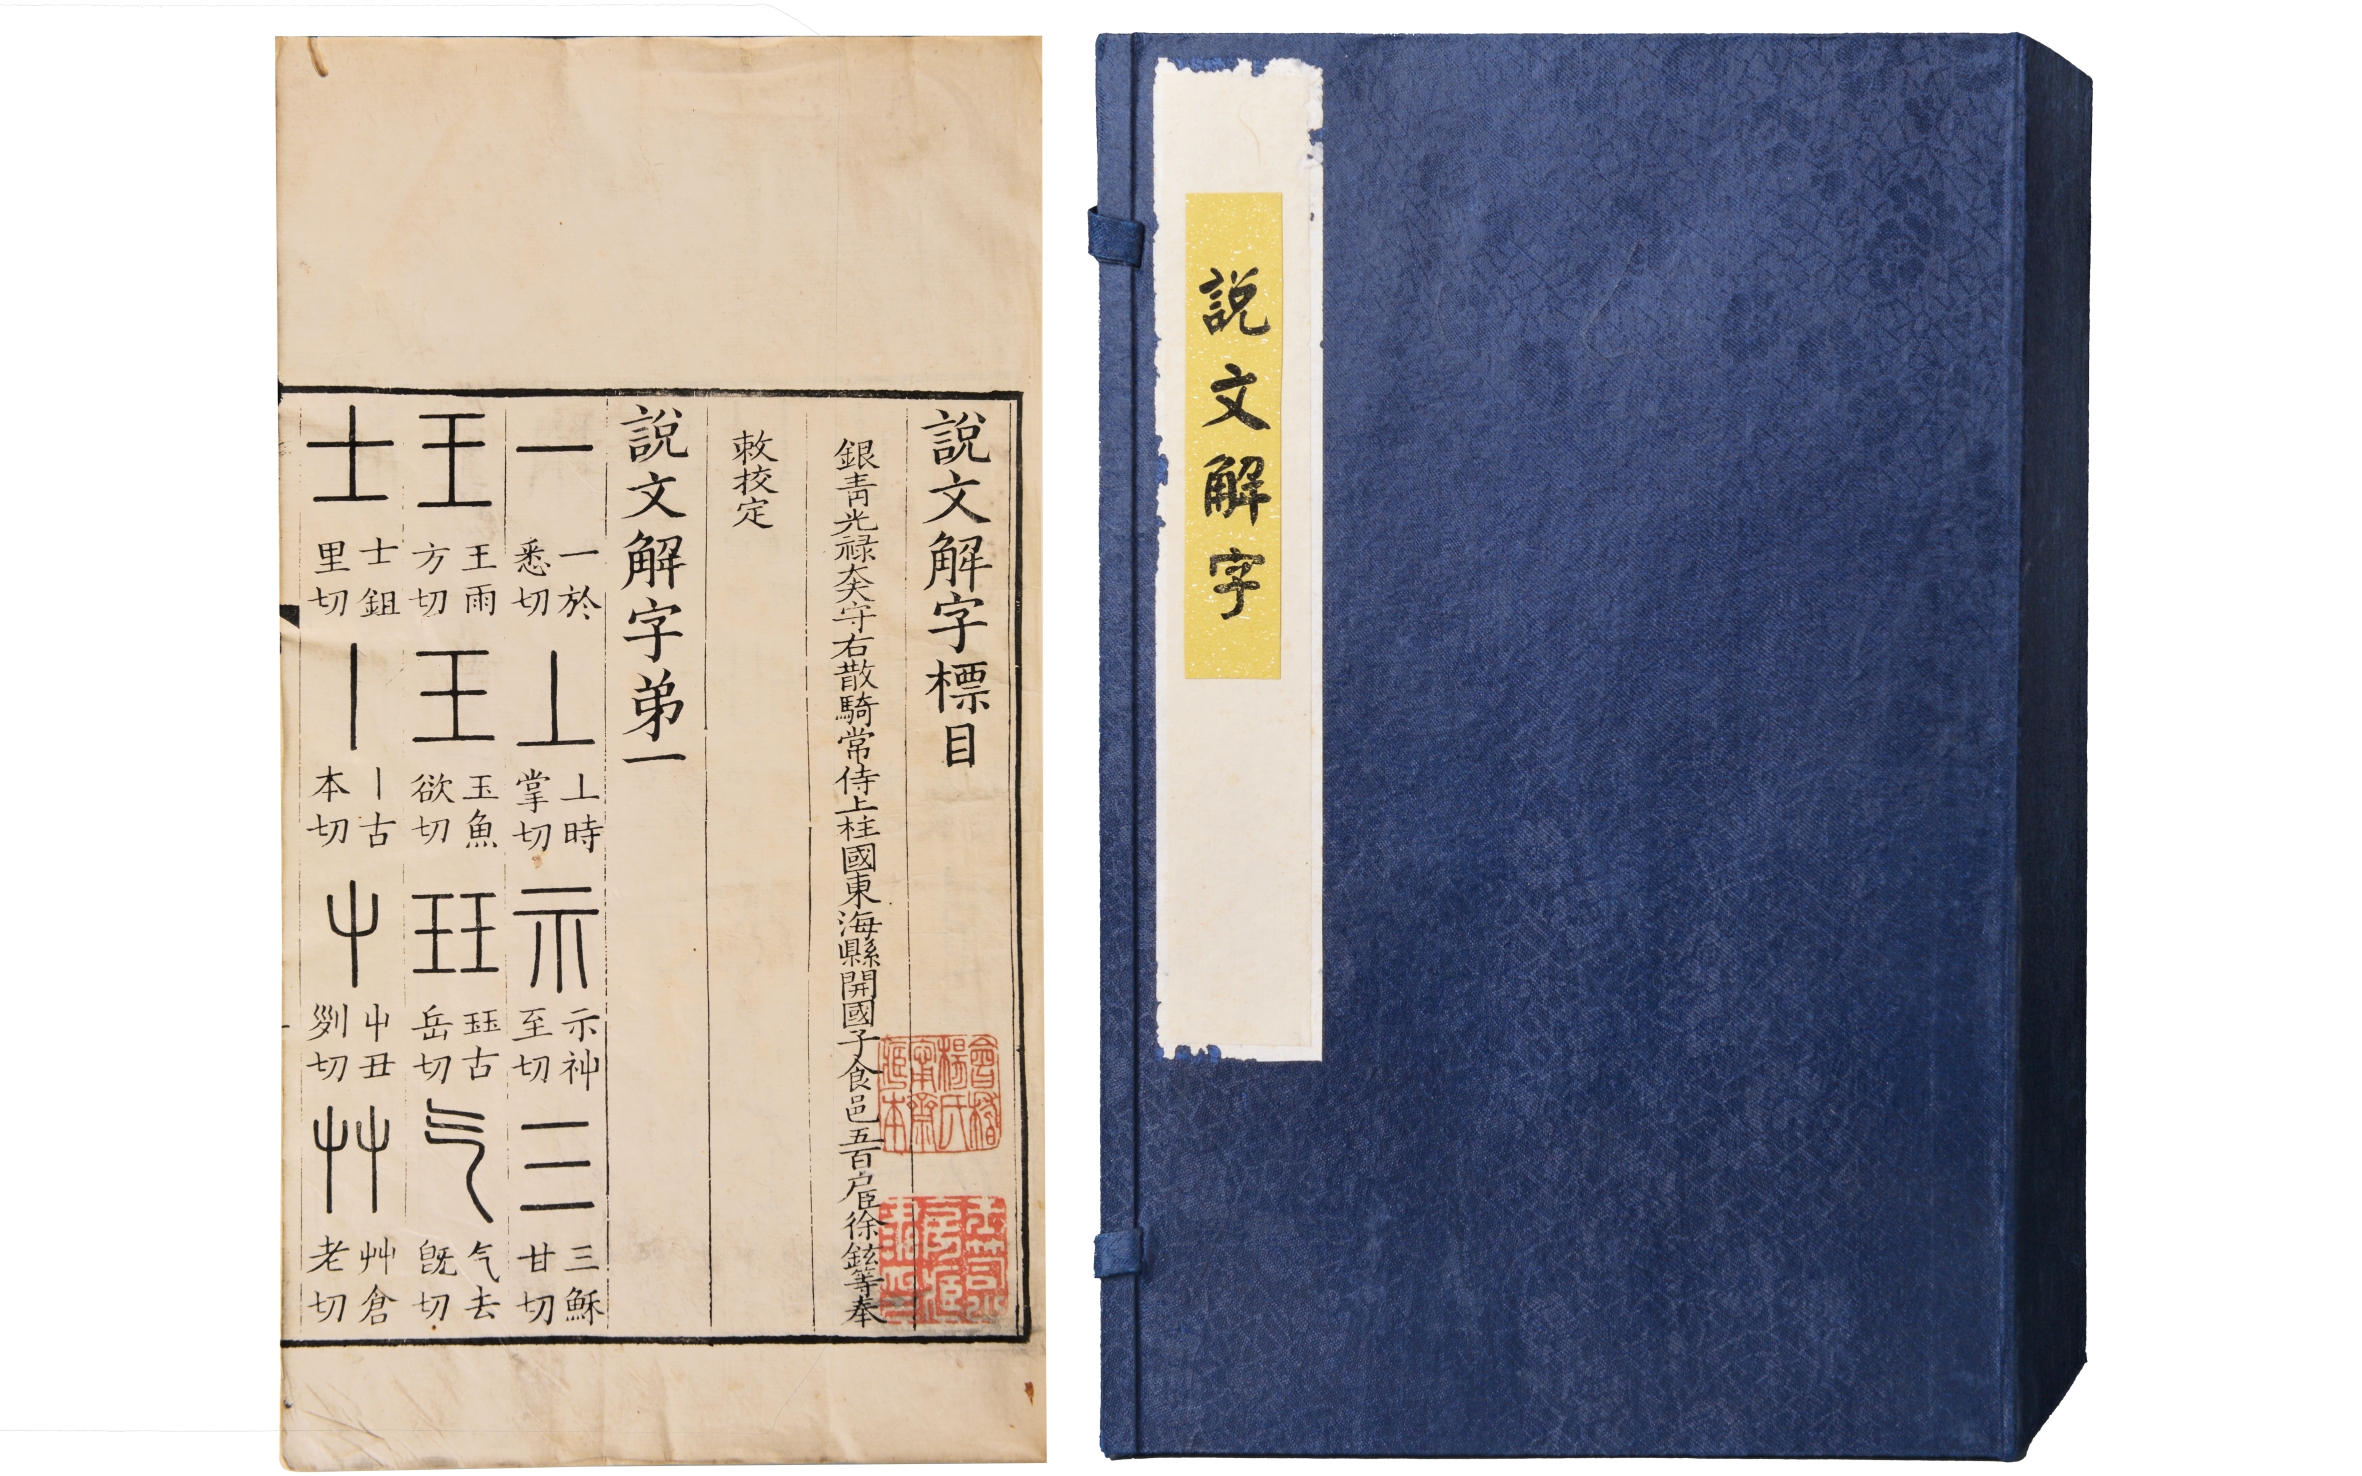 說文解字
說文解字標目
銀青光祿大夫守右散騎常侍上柱國東海縣開國子食邑五百戶臣徐鉉等奉
敕挍定
說文解字弟一
一 一於悉切 丄 丄時掌切 示 示神至切 三 三穌甘切
王 王雨方切 玉 玉魚欲切 玨 玨古岳切 气 气去旣切
士 士鉏里切 丨 丨古本切 屮 屮丑劣切 艸 艸倉老切
會稽楊氏